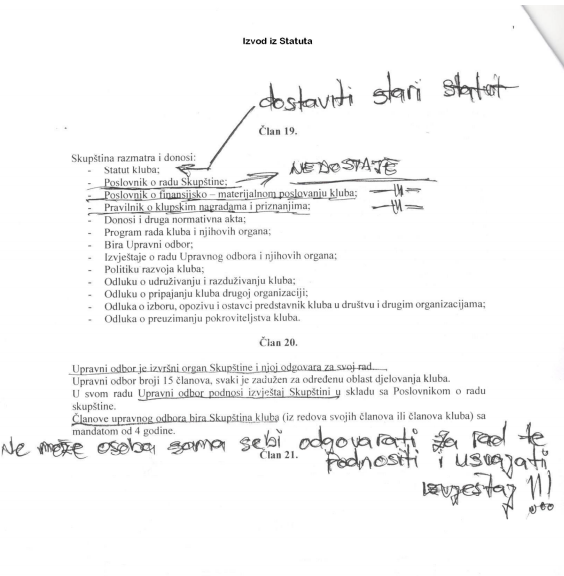 Izvod iz Statuta
dostaviti stari statut
Član 19.
Skupština razmatra i donosi:
- Statut kluba;
NEDOSTAJE
- Poslovnik o radu Skupštine;
- Poslovnik o finansijsko – materijalnom poslovanju kluba; —||—
- Pravilnik o klupskim nagradama i priznanjima; —||—
- Donosi i druga normativna akta;
- Program rada kluba i njihovih organa;
- Bira Upravni odbor;
- Izvještaje o radu Upravnog odbora i njihovih organa;
- Politiku razvoja kluba;
- Odluku o udruživanju i razduživanju kluba;
- Odluku o pripajanju kluba drugoj organizaciji;
- Odluka o izboru, opozivu i ostavci predstavnik kluba u društvu i drugim organizacijama;
- Odluka o preuzimanju pokroviteljstva kluba.
Član 20.
Upravni odbor je izvršni organ Skupštine i njoj odgovara za svoj rad.
Upravni odbor broji 15 članova, svaki je zadužen za određenu oblast djelovanja kluba.
U svom radu Upravni odbor podnosi izvještaj Skupštini u skladu sa Poslovnikom o radu
skupštine.
Članove upravnog odbora bira Skupština kluba (iz redova svojih članova ili članova kluba) sa
mandatom od 4 godine.
Ne može osoba sama sebi odgovarati za rad te
Član 21.
podnositi i usvajati
izvještaj !!!